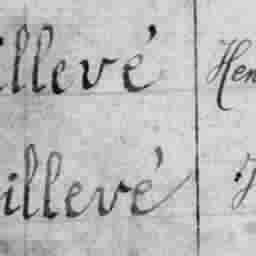 illevé Hen
illevé